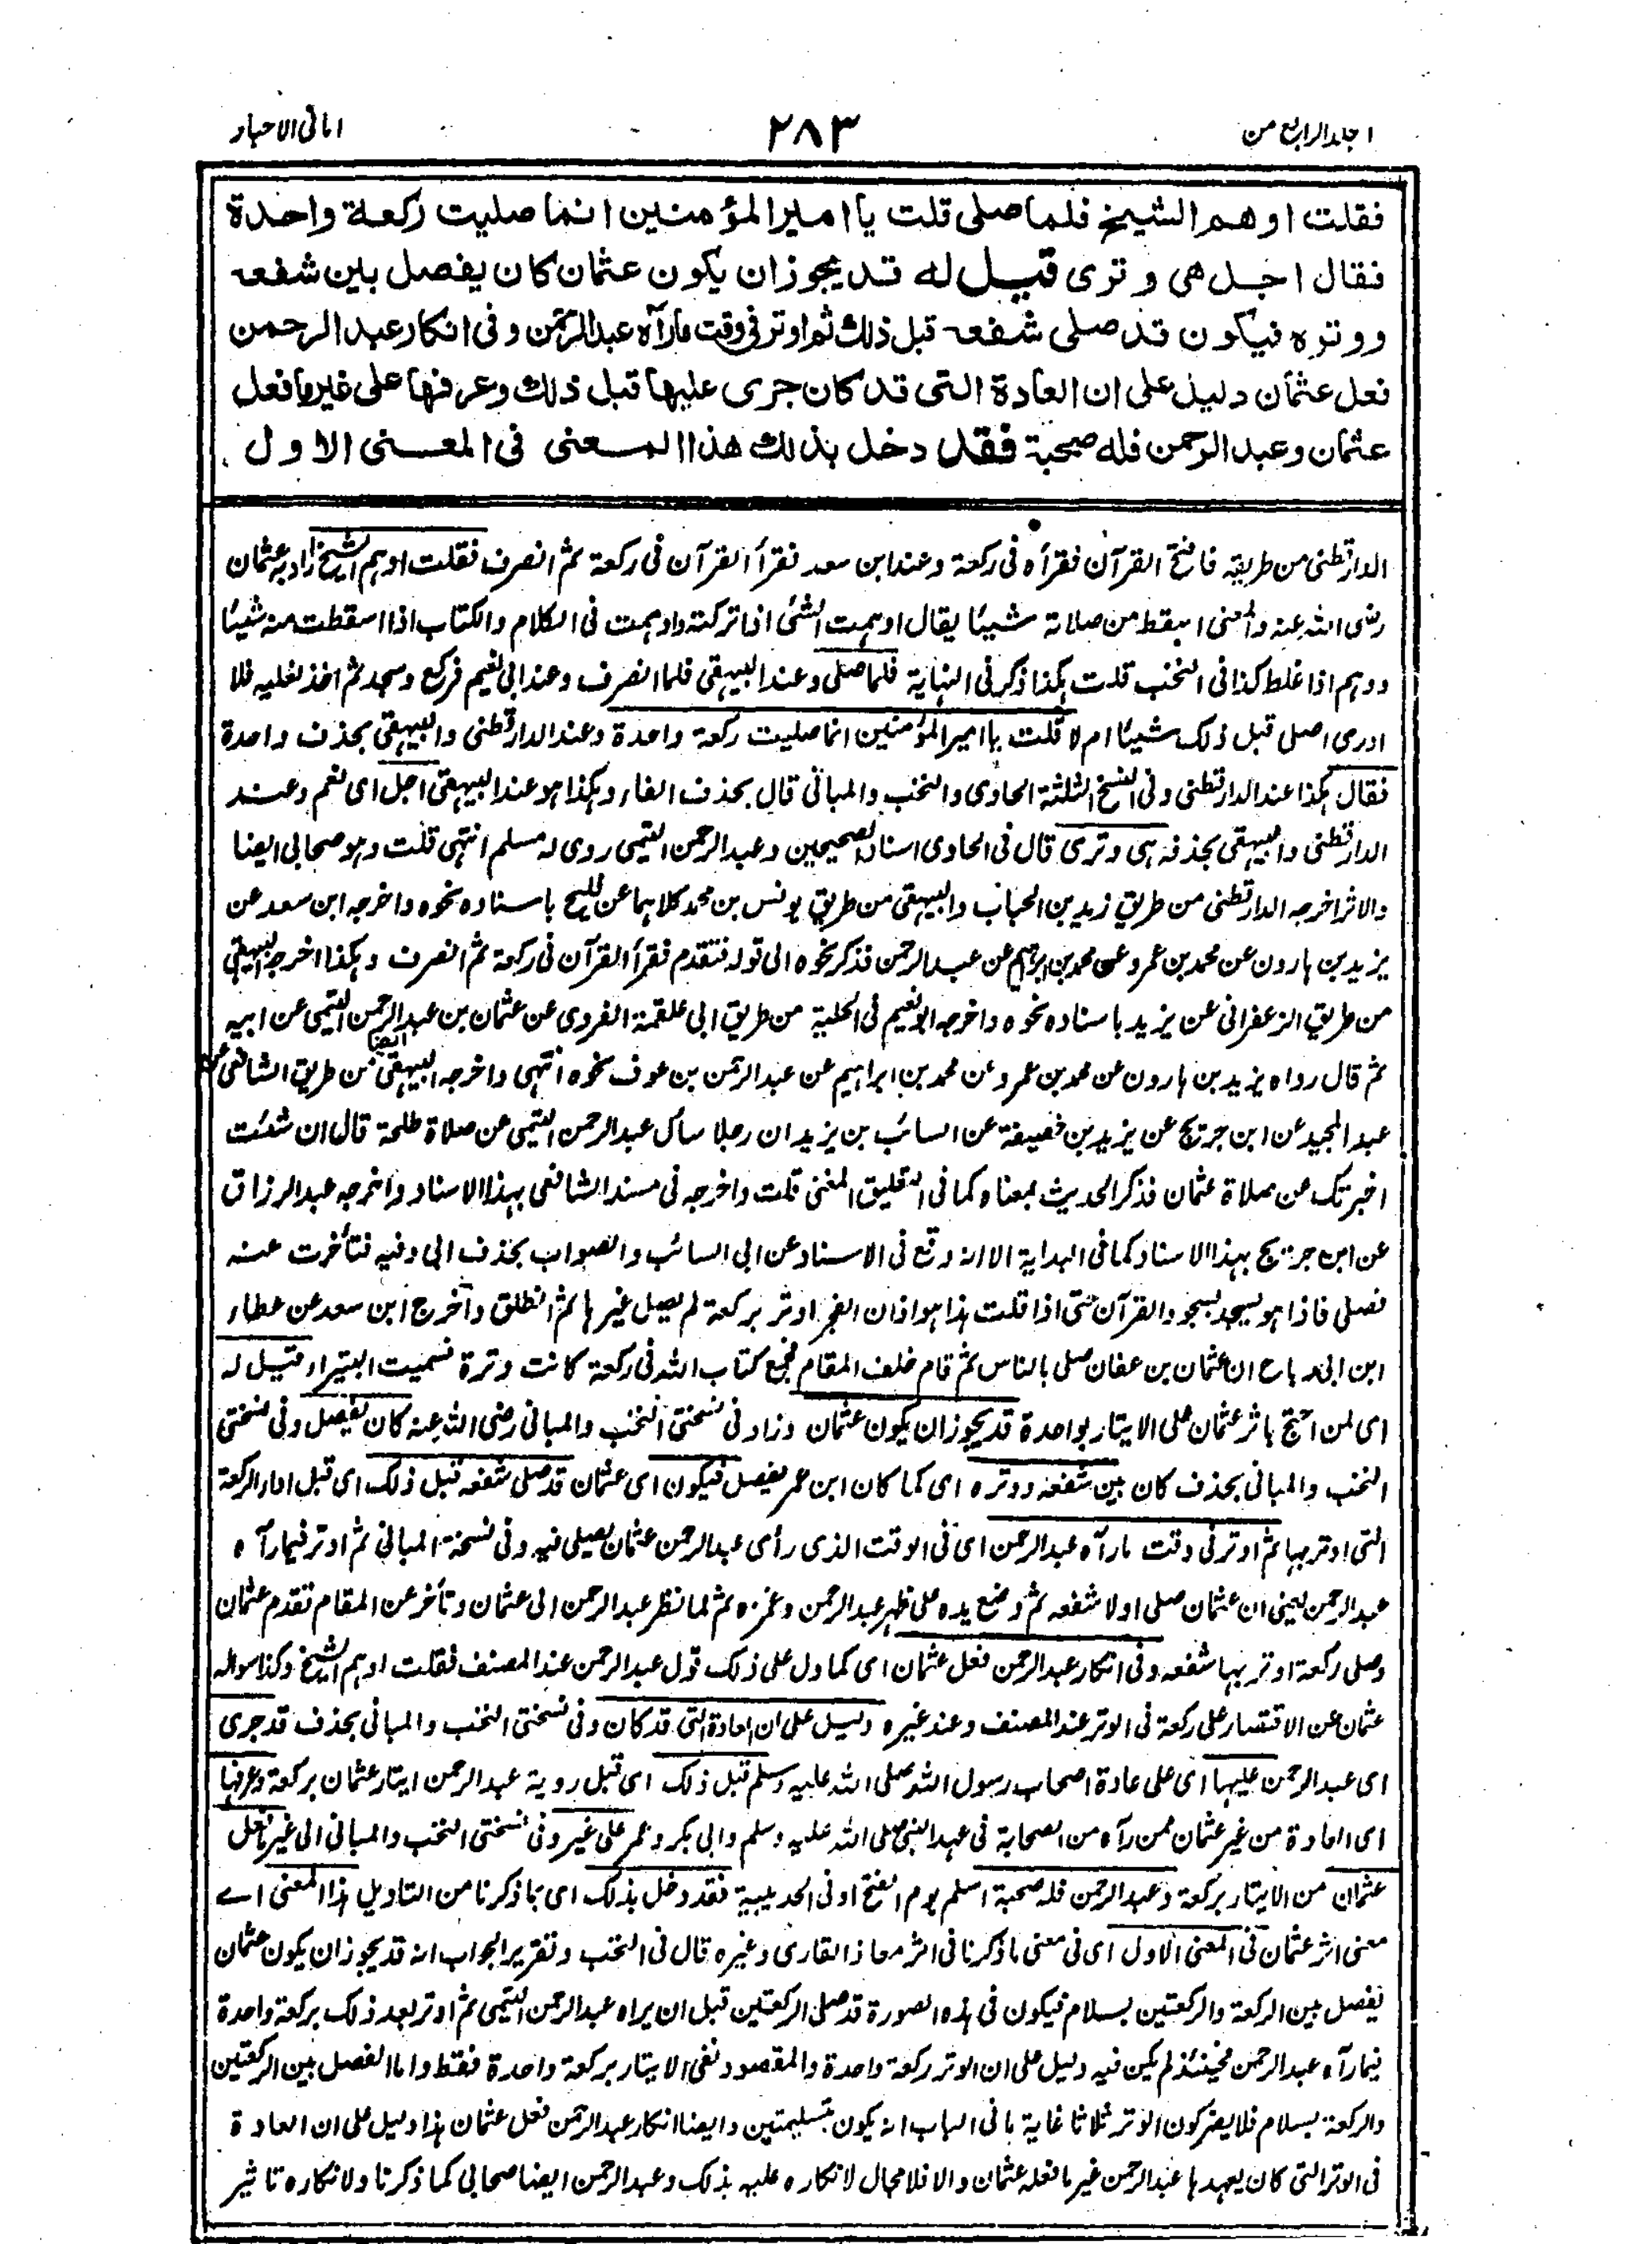 الجلد الرابع من
٢٨٣
امانى الاحبار
فقلت اوهم الشيخ فلما صلى قلت يا امير المؤمنين انما صليت ركعة واحدة
فقال اجل هى وترى قيل له قد يجوز ان يكون عثمان كان يفصل بين شفعه
ووتره فيكون قد صلى شفعه قبل ذلك ثم اوتر فى وقت ما رآه عبد الرحمن وفى انكار عبد الرحمن
فعل عثمان دليل على ان العادة التى قد كان جرى عليها قبل ذلك وعرفها على غير ما فعل
عثمان وعبد الرحمن فله صحبة فقد دخل بذلك هذا المعنى فى المعنى الاول .
الدارقطنى من طريقه فافتتح القرآن فقرأه فى ركعة وعند ابن سعد فقرأ القرآن فى ركعة ثم انصرف فقلت اوهم الشيخ اراد به عثمان
رضى الله عنه والمعنى اسقط من صلاته شيئا يقال اوهمت الشئ اذا تركته واوهمت فى الكلام والكتاب اذا اسقطت منه شيئا
ووهم اذا غلط كذا فى النخب قلت هكذا ذكر فى النهاية فلما صلى وعند البيهقى فلما انصرف وعند ابى نعيم فركع وسجد ثم اخذ نعليه فلا
ادرى اصلى قبل ذلك شيئا ام لا قلت يا امير المؤمنين انما صليت ركعة واحدة وعند الدارقطنى والبيهقى بحذف واحدة
فقال هكذا عند الدارقطنى وفى النسخ الثلثة الحاوى والنخب والمبانى قال بحذف الفاء وهكذا هو عند البيهقى اجل اى نعم وعند
الدارقطنى والبيهقى بحذفه هى وترى قال فى الحاوى اسناد الصحيحين وعبد الرحمن التيمى روى له مسلم انتهى قلت وهو صحابى ايضا
والاثر اخرجه الدارقطنى من طريق زيد بن الحباب والبيهقى من طريق يونس بن محمد كلاهما عن فليح باسناده نحوه واخرجه ابن سعد عن
يزيد بن هارون عن محمد بن عمرو عن محمد بن ابراهيم عن عبد الرحمن فذكر نحوه الى قوله فتقدم فقرأ القرآن فى ركعة ثم انصرف وهكذا اخرجه البيهقى
من طريق الزعفرانى عن يزيد باسناده نحوه واخرجه ابو نعيم فى الحلية من طريق ابى علقمة الفروى عن عثمان بن عبد الرحمن التيمى عن ابيه
ثم قال رواه يزيد بن هارون عن محمد بن عمرو عن محمد بن ابراهيم عن عبد الرحمن بن عوف نحوه انتهى واخرجه البيهقى ايضا من طريق الشافعى عن
عبد المجيد عن ابن جريج عن يزيد بن خصيفة عن السائب بن يزيد ان رجلا سأل عبد الرحمن التيمى عن صلاة طلحة قال ان شئت
اخبرتك عن صلاة عثمان فذكر الحديث بمعناه كما فى التعليق المغنى قلت واخرجه فى مسند الشافعى بهذا الاسناد واخرجه عبد الرزاق
عن ابن جريج بهذا الاسناد كما فى البداية الا انه وقع فى الاسناد عن ابى السائب والصواب بحذف ابى وفيه فتأخرت عنه
فصلى فاذا هو يسجد بسجود القرآن حتى اذا قلت هذا هو اذان الفجر اوتر بركعة لم يصل غيرها ثم انطلق واخرج ابن سعد عن عطاء
ابن ابى رباح ان عثمان بن عفان صلى بالناس ثم قام خلف المقام فجمع كتاب الله فى ركعة كانت وترة فسميت البتيراء قيل له
اى لمن احتج باثر عثمان على الايتار بواحدة قد يجوز ان يكون عثمان وزاد فى نسختى النخب والمبانى رضى الله عنه كان يفصل وفى نسختى
النخب والمبانى بحذف كان بين شفعه ووتره اى كما كان ابن عمر يفصل فيكون اى عثمان قد صلى شفعه قبل ذلك اى قبل اداء الركعة
التى اوتر بها ثم اوتر فى وقت ما رآه عبد الرحمن اى فى الوقت الذى رأى عبد الرحمن عثمان يصلى فيه وفى نسخة المبانى ثم اوتر فيما رآه
عبد الرحمن يعنى ان عثمان صلى اولا شفعه ثم وضع يده على ظهر عبد الرحمن وغمزه ثم لما نظر عبد الرحمن الى عثمان وتأخر عن المقام تقدم عثمان
وصلى ركعة اوتر بها شفعه وفى انكار عبد الرحمن فعل عثمان اى كما دل على ذلك قول عبد الرحمن عند المصنف فقلت اوهم الشيخ وكذا سواله
عثمان عن الاقتصار على ركعة فى الوتر عند المصنف وعند غيره دليل على ان العادة التى قد كان وفى نسختى النخب والمبانى بحذف قد جرى
اى عبد الرحمن عليها اى على عادة اصحاب رسول الله صلى الله عليه وسلم قبل ذلك اى قبل روية عبد الرحمن ايتار عثمان بركعة وعرفها
اى العادة من غير عثمان ممن رآه من الصحابة فى عهد النبى صلى الله عليه وسلم وابى بكر وعمر على غير وفى نسختى النخب والمبانى الى غير ما فعل
عثمان من الايتار بركعة وعبد الرحمن فله صحبة اسلم يوم الفتح او فى الحديبية فقد دخل بذلك اى بما ذكرنا من التاويل هذا المعنى اے
معنى اثر عثمان فى المعنى الاول اى فى معنى ما ذكرنا فى اثر معاذ القارى وغيره قال فى النخب وتقرير الجواب انه قد يجوز ان يكون عثمان
يفصل بين الركعة والركعتين بسلام فيكون فى هذه الصورة قد صلى الركعتين قبل ان يراه عبد الرحمن التيمى ثم اوتر بعد ذلك بركعة واحدة
فيما رآه عبد الرحمن فحينئذ لم يكن فيه دليل على ان الوتر ركعة واحدة والمقصود نفى الايتار بركعة واحدة فقط واما الفصل بين الركعتين
والركعة بسلام فلا يضر كون الوتر ثلاثا غاية ما فى الباب انه يكون بتسليمتين وايضا انكار عبد الرحمن فعل عثمان هذا دليل على ان العادة
فى الوتر التى كان يعهدها عبد الرحمن غير ما فعله عثمان والا فلا مجال لانكاره عليه بذلك وعبد الرحمن ايضا صحابى كما ذكرنا ولانكاره تاثير